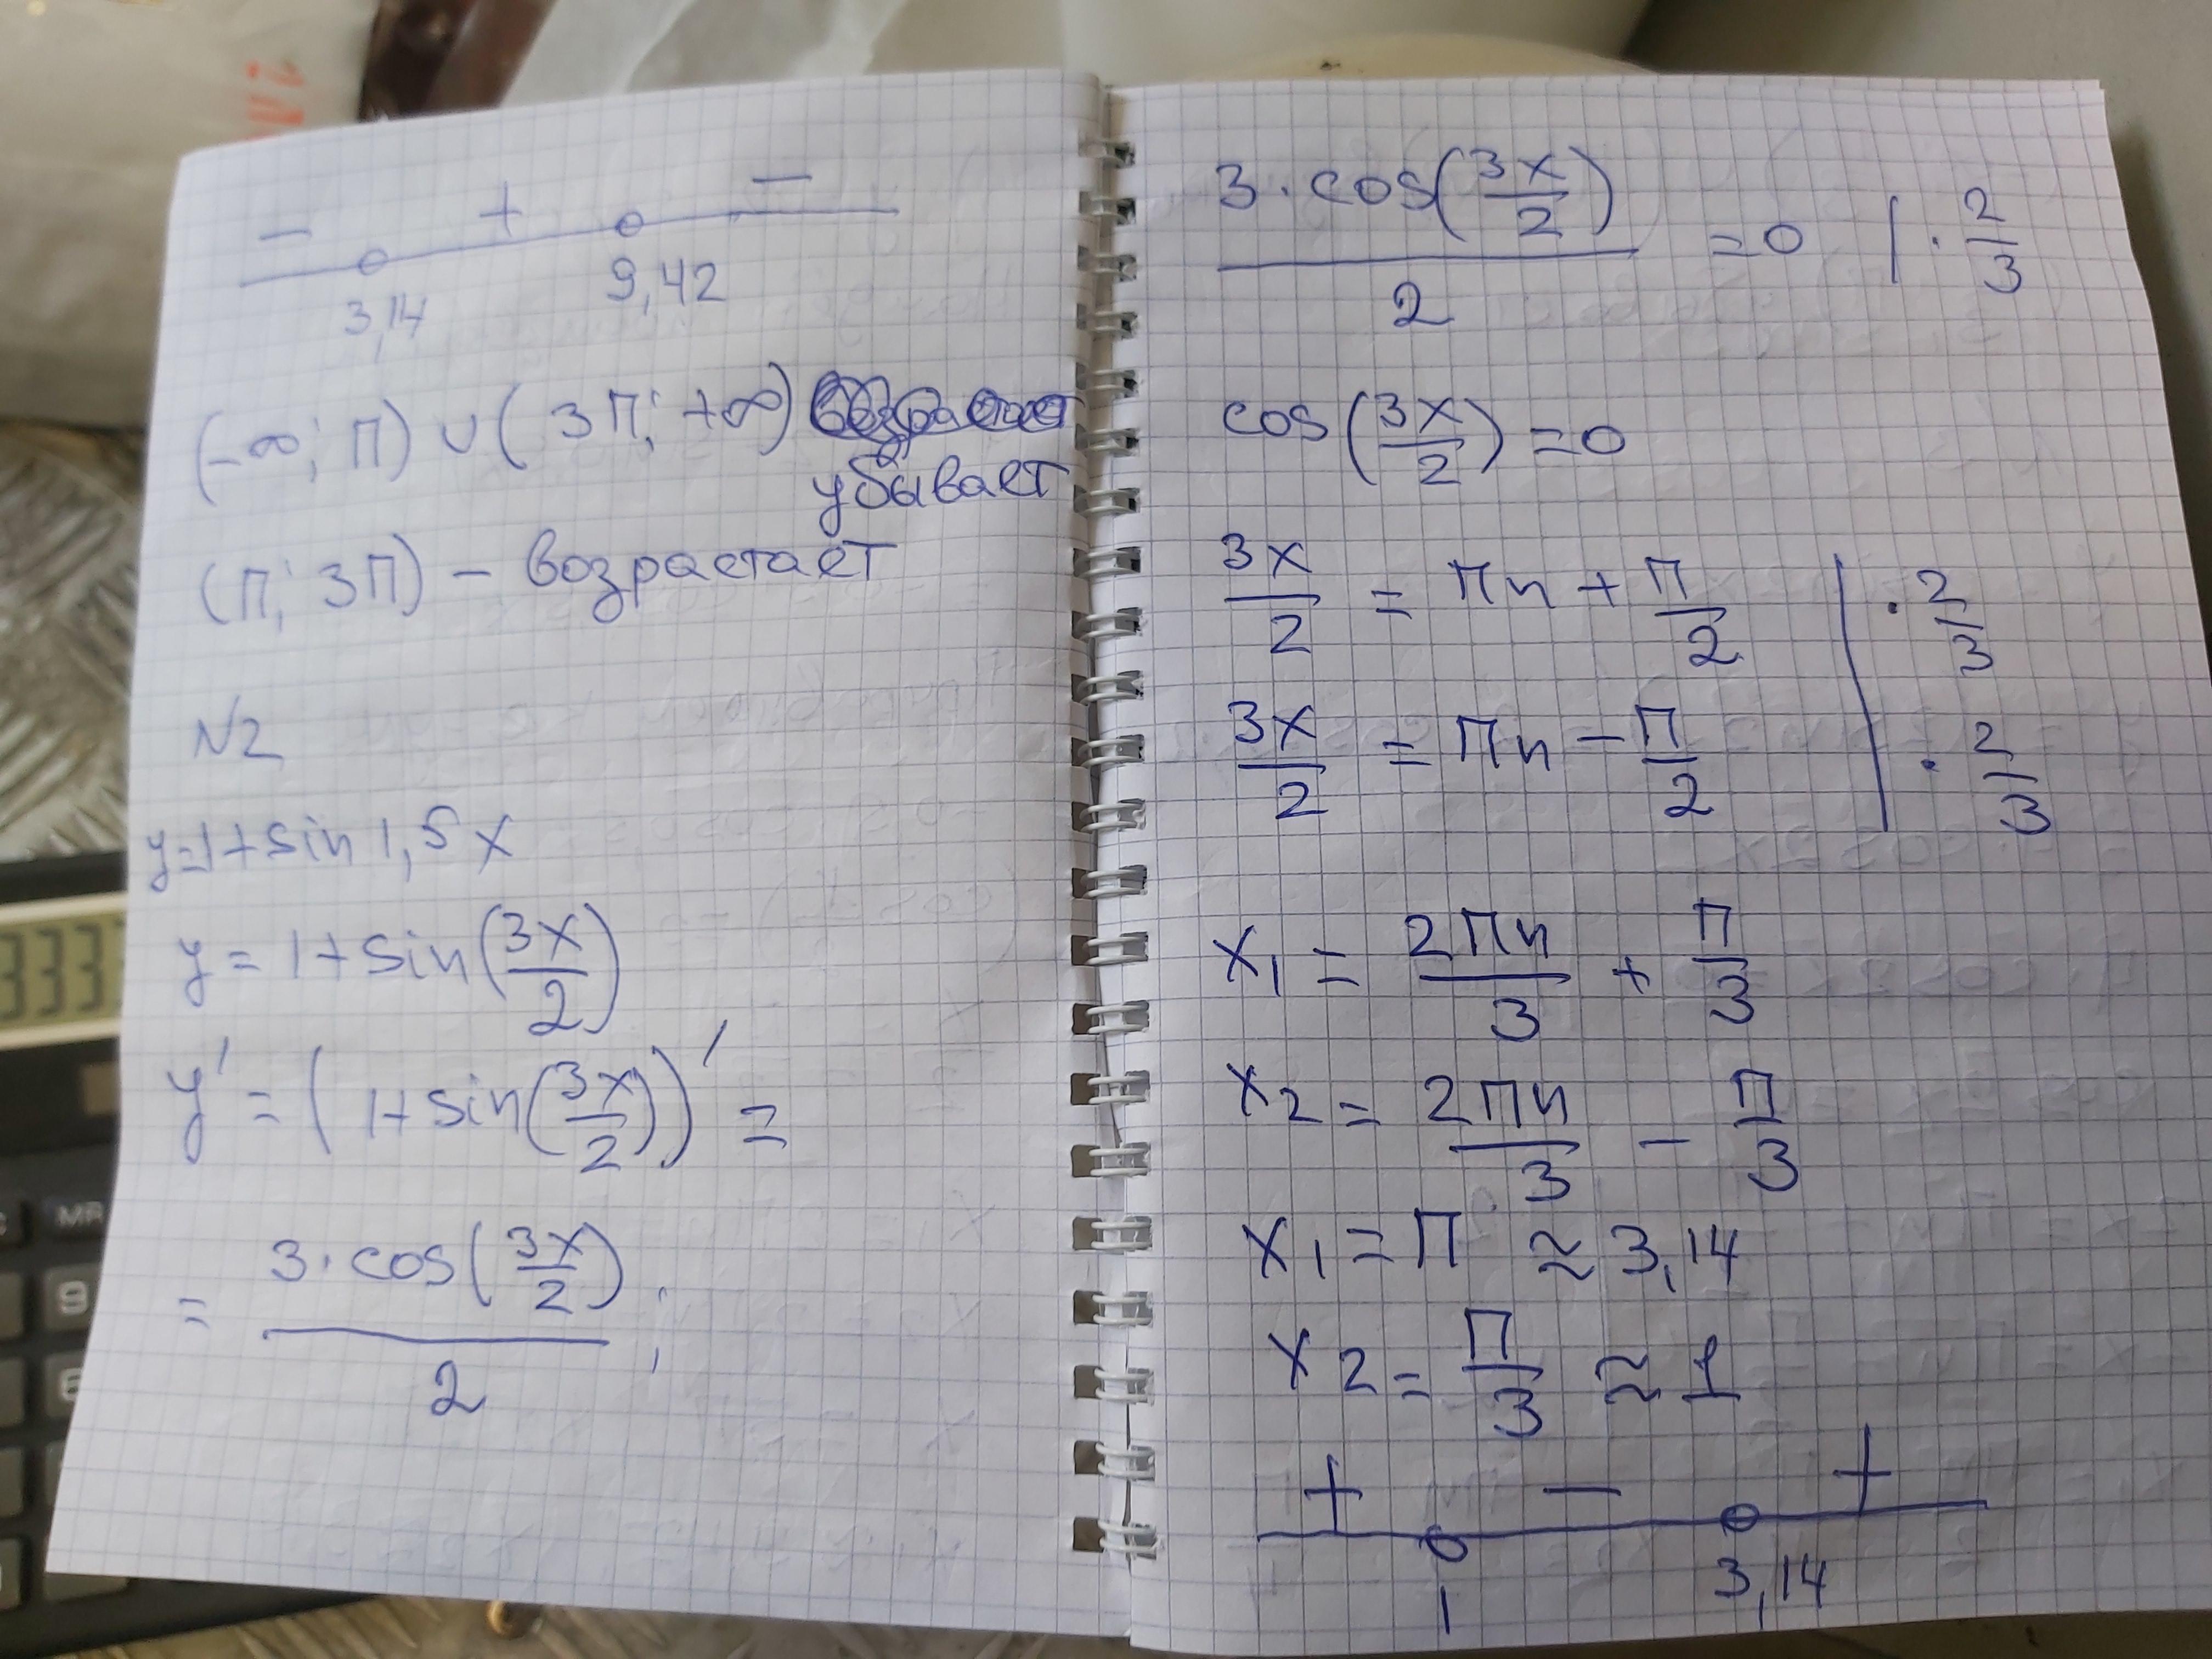 2 л
333
MR
9
6
- + -
3,14 9,42
(-∞; π) ∪ (3π; +∞) возрастает
убывает
(π; 3π) - возрастает
N2
y=1+sin 1,5x
y = 1+sin(3x/2)
y' = (1+sin(3x/2))' =
= 3·cos(3x/2)/2 ;
3·cos(3x/2)/2 = 0 | · 2/3
cos(3x/2) = 0
3x/2 = πn + π/2 | · 2/3
3x/2 = πn - π/2 | · 2/3
x₁ = 2πn/3 + π/3
x₂ = 2πn/3 - π/3
x₁ = π ≈ 3,14
x₂ = π/3 ≈ 1
+ - +
1 3,14